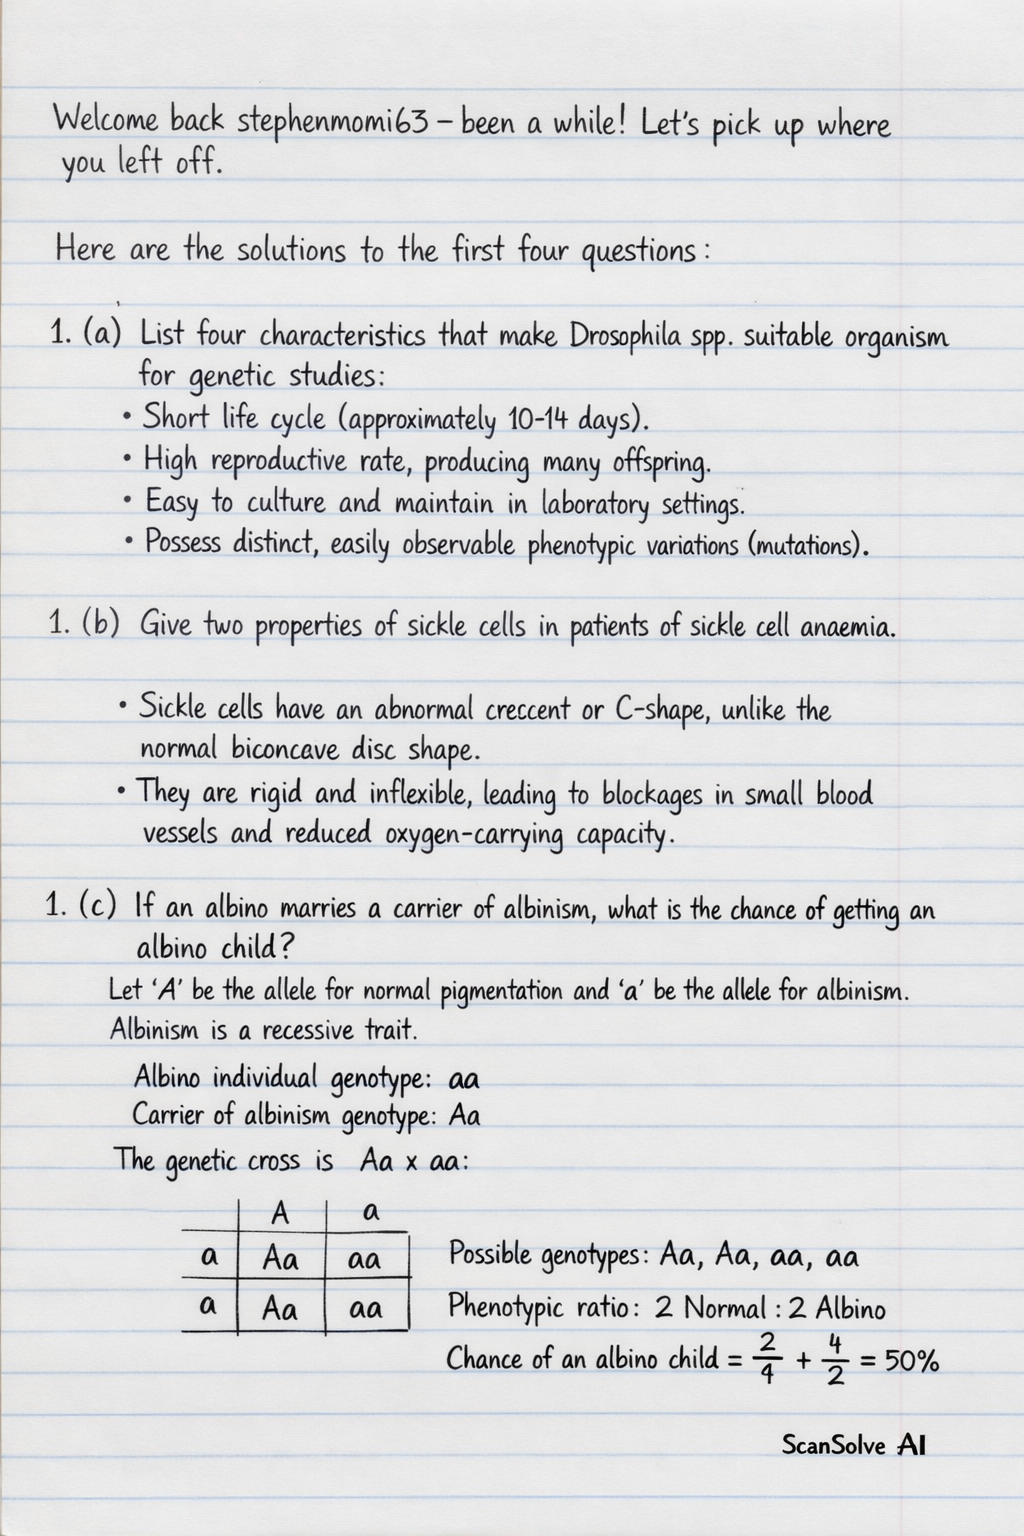 Welcome back stephenmomi63 – been a while! Let's pick up where
you left off.
Here are the solutions to the first four questions:
1. (a) List four characteristics that make Drosophila spp. suitable organism
for genetic studies:
• Short life cycle (approximately 10-14 days).
• High reproductive rate, producing many offspring.
• Easy to culture and maintain in laboratory settings.
• Possess distinct, easily observable phenotypic variations (mutations).
1. (b) Give two properties of sickle cells in patients of sickle cell anaemia.
• Sickle cells have an abnormal creccent or C-shape, unlike the
normal biconcave disc shape.
• They are rigid and inflexible, leading to blockages in small blood
vessels and reduced oxygen-carrying capacity.
1. (c) If an albino marries a carrier of albinism, what is the chance of getting an
albino child?
Let 'A' be the allele for normal pigmentation and 'a' be the allele for albinism.
Albinism is a recessive trait.
Albino individual genotype: aa
Carrier of albinism genotype: Aa
The genetic cross is Aa x aa:
A a
a Aa aa
a Aa aa
Possible genotypes: Aa, Aa, aa, aa
Phenotypic ratio: 2 Normal : 2 Albino
Chance of an albino child = 2/4 + 4/2 = 50%
ScanSolve AI